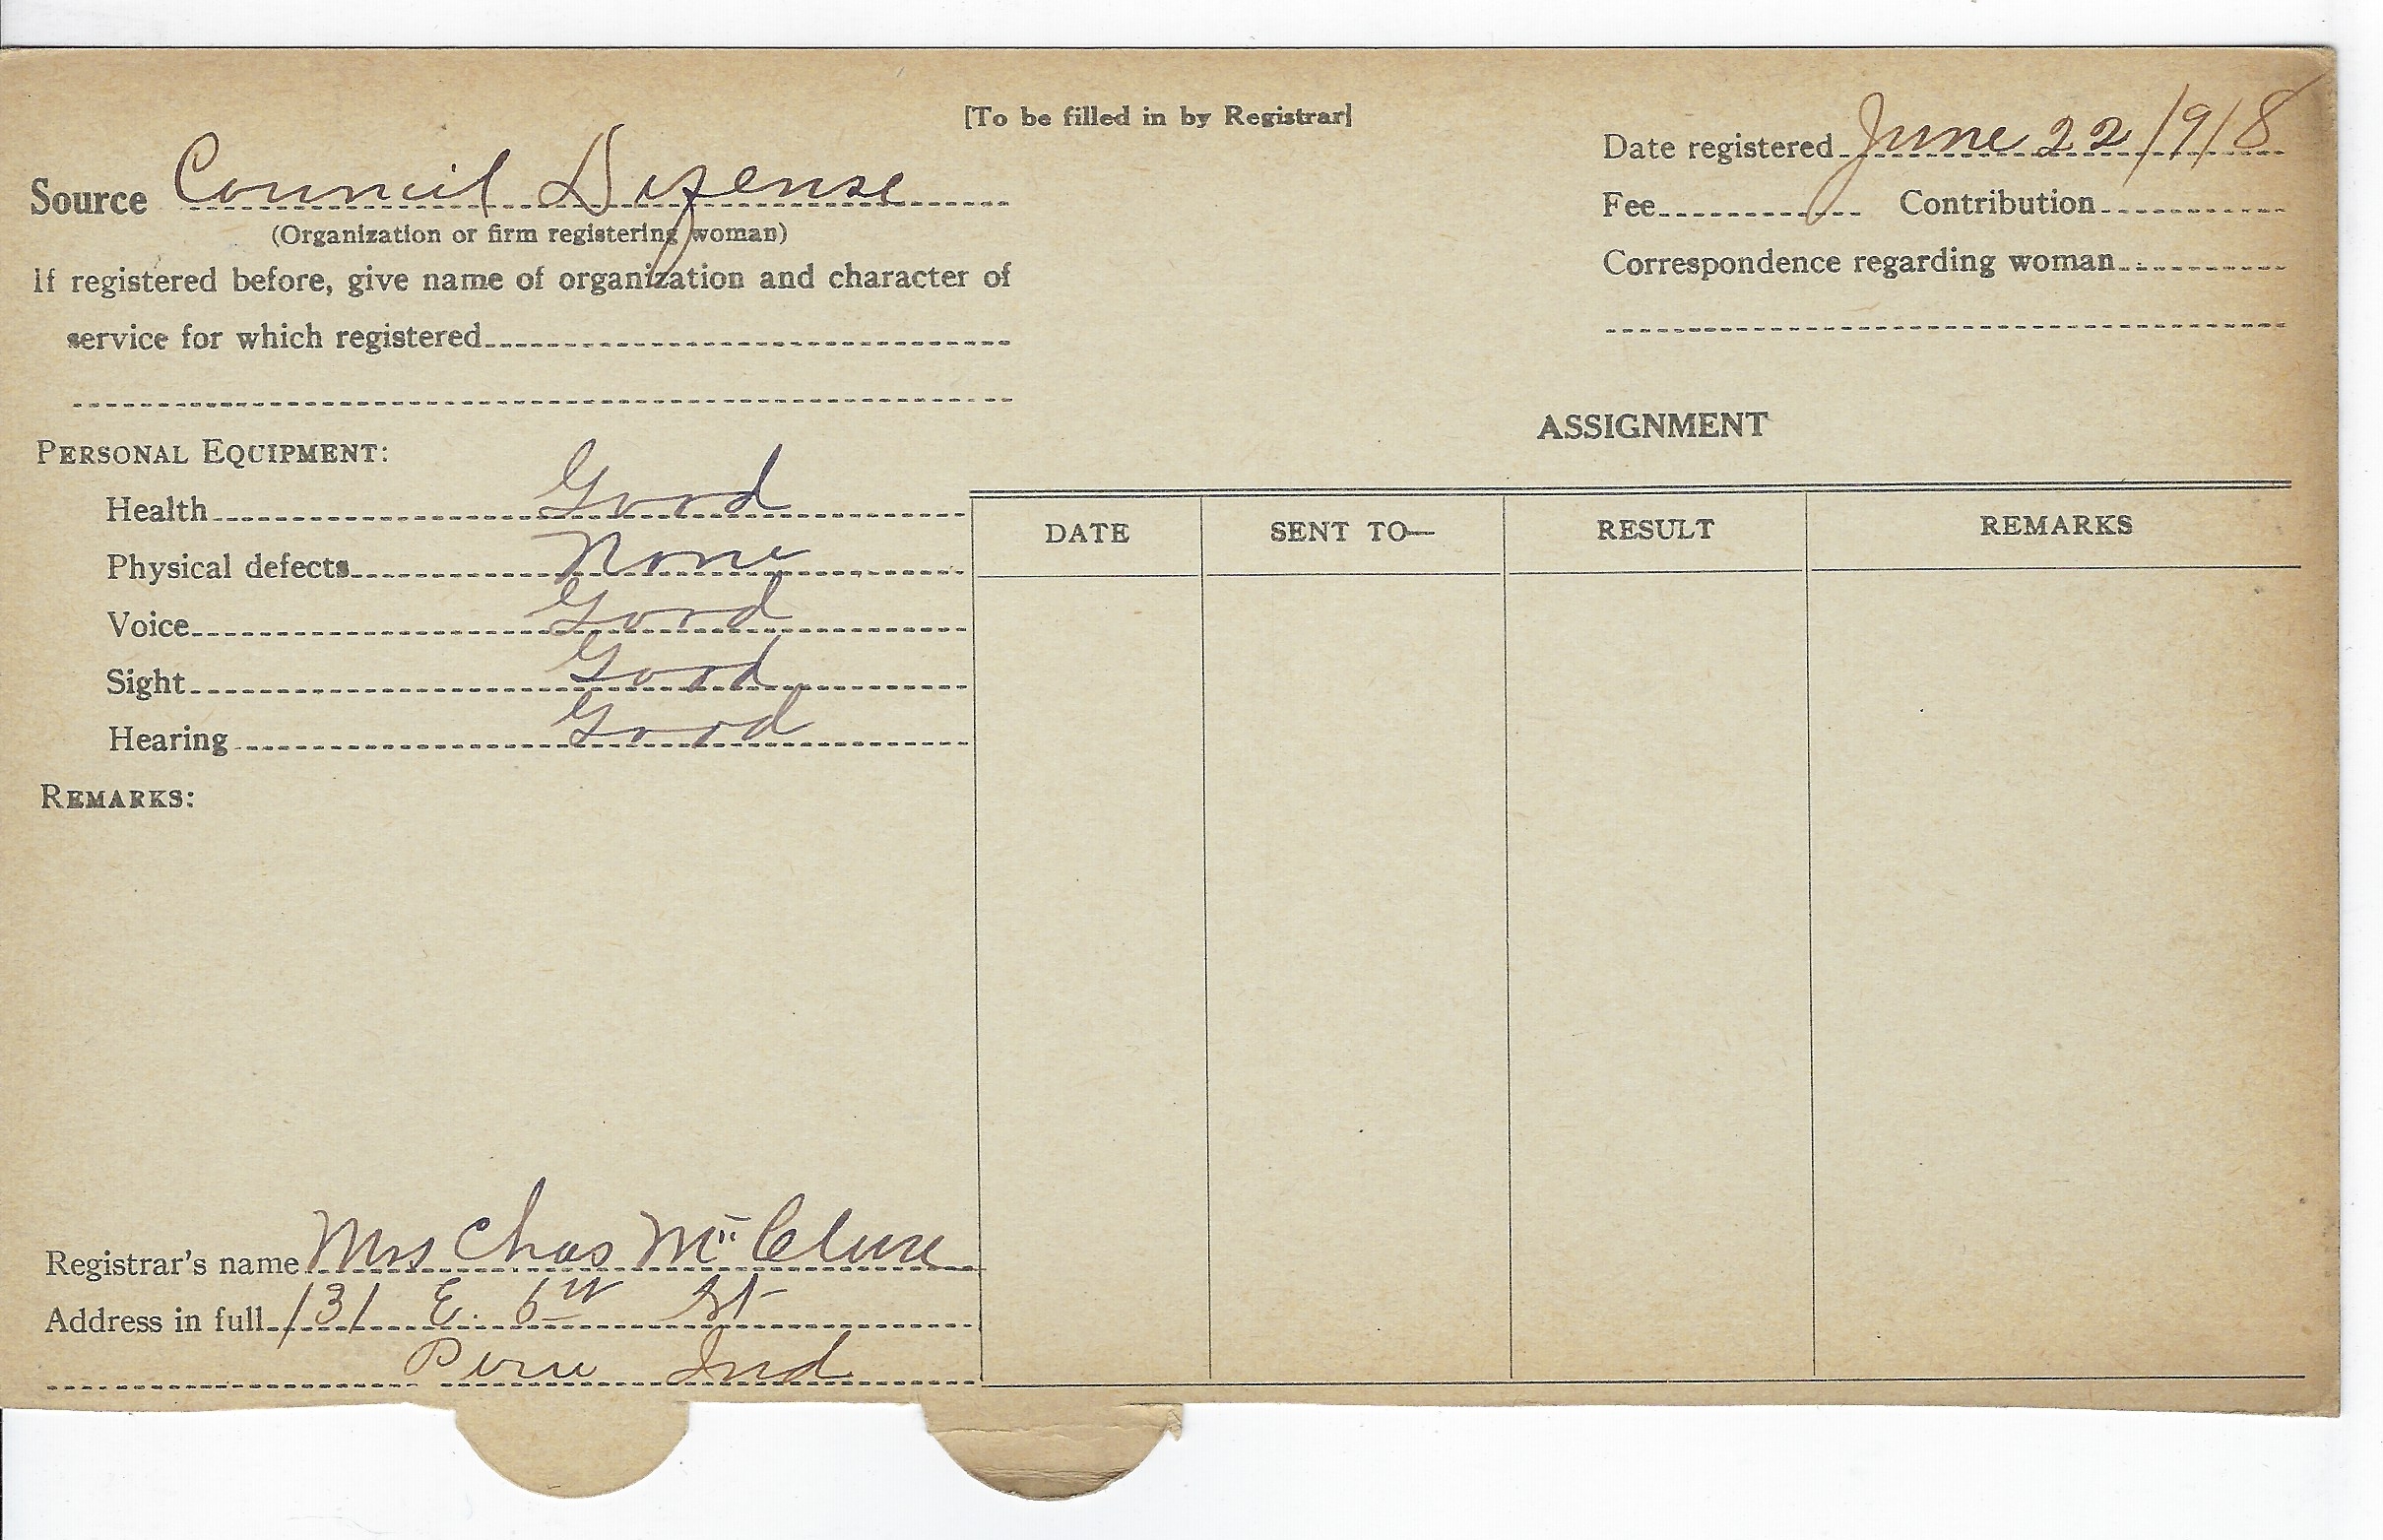 [To be filled in by Registrar]
Source Council Defense
(Organization or firm registering woman)
If registered before, give name of organization and character of
service for which registered
Date registered June 22/918
Fee Contribution
Correspondence regarding woman
PERSONAL EQUIPMENT:
Health Good
Physical defects None
Voice Good
Sight Good
Hearing Good
REMARKS:
Registrar's name Mrs Chas McClure
Address in full 131 E. 6th St
Peru Ind
ASSIGNMENT
DATE SENT TO— RESULT REMARKS